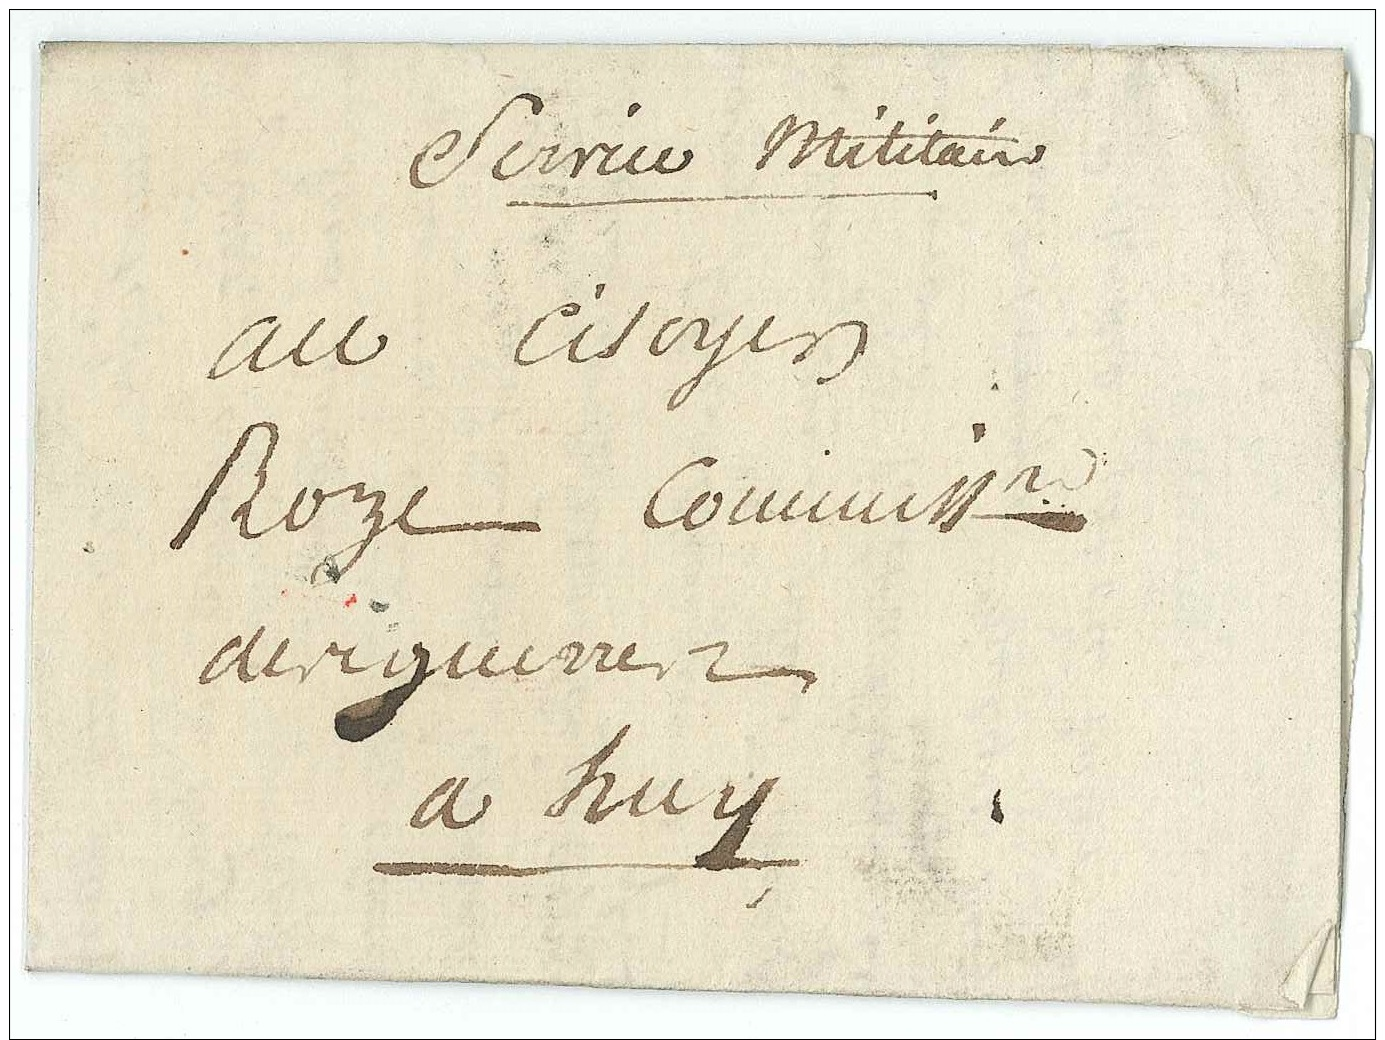 Service Militaire
au Citoyen
Roze Commissre
des guerres
a huy